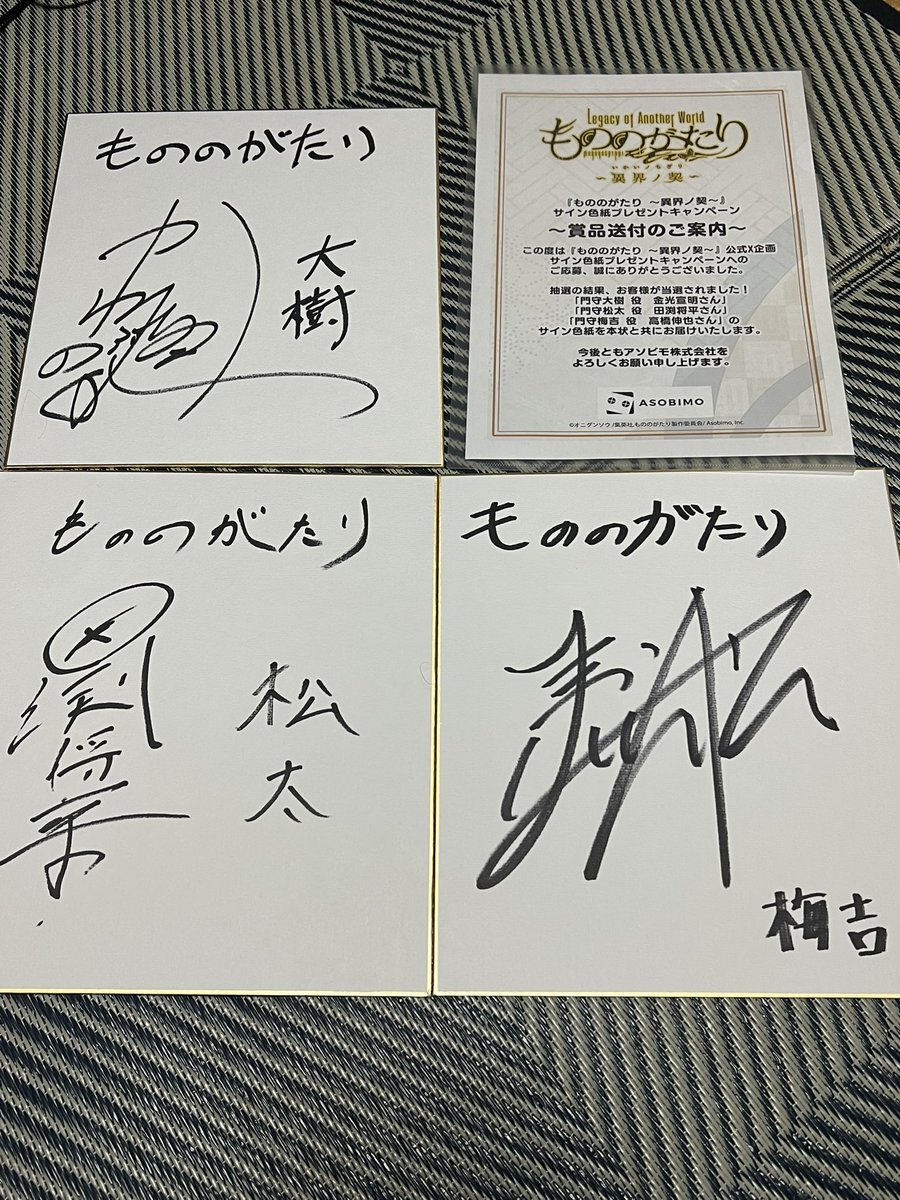 もののがたり
大樹
Legacy of Another World
もののがたり
いかいノちぎり
〜異界ノ契〜
『もののがたり 〜異界ノ契〜』
サイン色紙プレゼントキャンペーン
〜賞品送付のご案内〜
この度は『もののがたり 〜異界ノ契〜』公式X企画
サイン色紙プレゼントキャンペーンへの
ご応募、誠にありがとうございました。
抽選の結果、お客様が当選されました！
「門守大樹 役 金光宣明さん」
「門守松太 役 田渕将平さん」
「門守梅吉 役 高橋伸也さん」の
サイン色紙を本状と共にお届けいたします。
今後ともアソビモ株式会社を
よろしくお願い申し上げます。
ASOBIMO
©オニグンソウ/集英社,もののがたり製作委員会/ Asobimo, Inc.
もののがたり
松太
もののがたり
梅吉